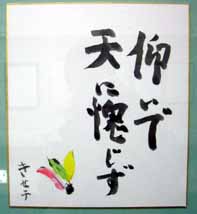 仰いで
天に愧じず
きせ子